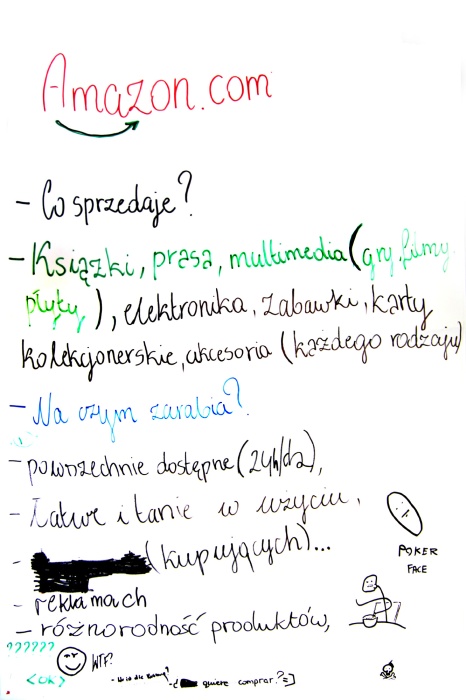 Amazon.com
- Co sprzedaje?
- Książki, prasa, multimedia (gry, filmy,
płyty), elektronika, zabawki, karty
kolekcjonerskie, akcesoria (każdego rodzaju)
- Na czym zarabia?
- powszechnie dostępne (24h/dz),
- Łatwe i tanie w użyciu,
- (kupujących)...
POKER
FACE
- reklamach
- różnorodność produktów,
??????
WTF?
<OK>
quiere comprar?=]